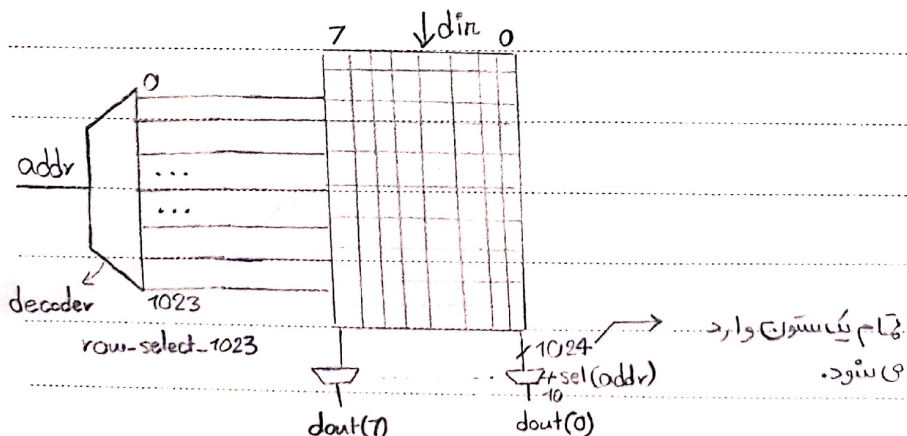 7 din 0
0
addr
...
...
decoder
1023
row_select_1023
1024
تمام یک ستون وارد
می شود.
sel(addr)
10
dout(7) dout(0)